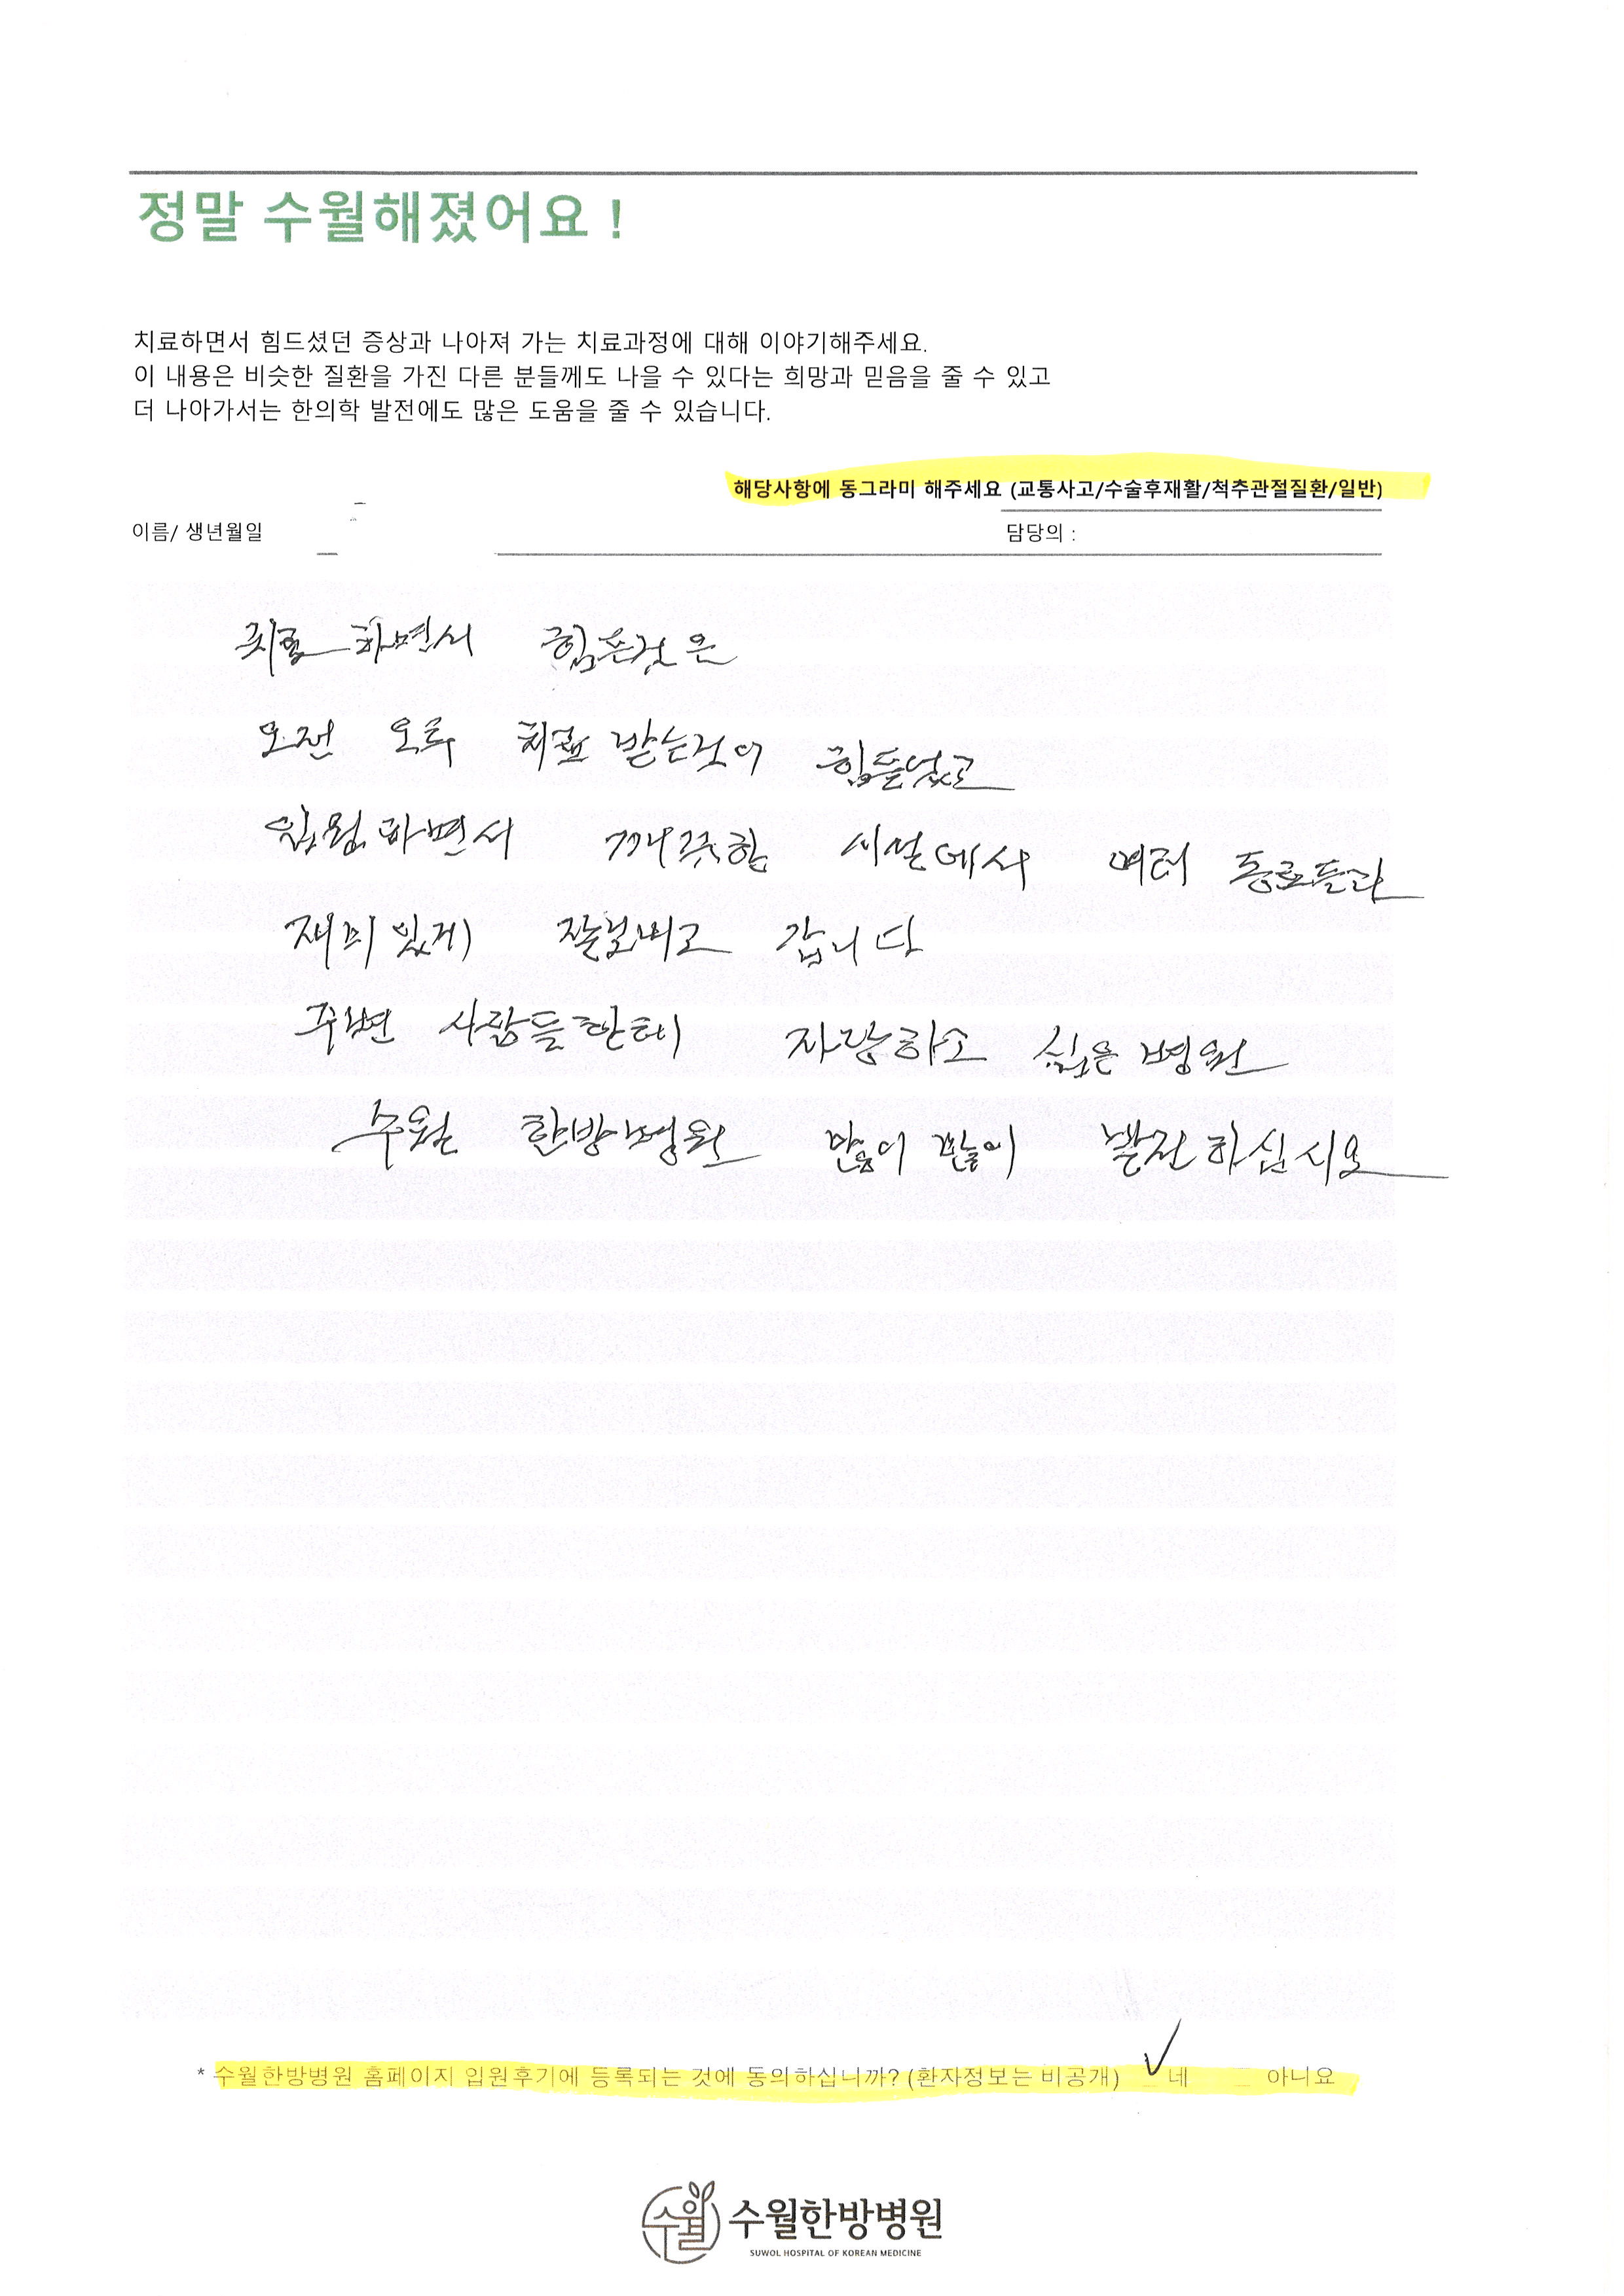 정말 수월해졌어요 !
치료하면서 힘드셨던 증상과 나아져 가는 치료과정에 대해 이야기해주세요.
이 내용은 비슷한 질환을 가진 다른 분들께도 나을 수 있다는 희망과 믿음을 줄 수 있고
더 나아가서는 한의학 발전에도 많은 도움을 줄 수 있습니다.
해당사항에 동그라미 해주세요 (교통사고/수술후재활/척추관절질환/일반)
이름/ 생년월일 담당의 :
치료 하면서 힘든것은
오전 오후 치료 받는것이 힘들었고
입원하면서 깨끗한 시설에서 여러 동료들과
재미있게 잘보내고 갑니다
주변 사람들한테 자랑하고 싶은 병원
수월 한방병원 많이 많이 발전하십시오
* 수월한방병원 홈페이지 입원후기에 등록되는 것에 동의하십니까? (환자정보는 비공개) ✓ 네 _ 아니요
수월 수월한방병원
SUWOL HOSPITAL OF KOREAN MEDICINE